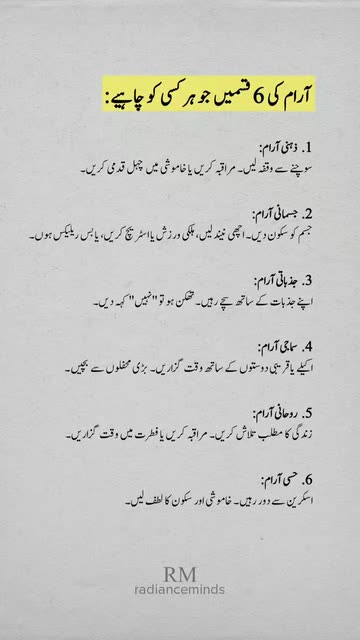 آرام کی 6 قسمیں جو ہر کسی کو چاہیے:
1. ذہنی آرام:
سوچنے سے وقفہ لیں۔ مراقبہ کریں یا خاموشی میں چہل قدمی کریں۔
2. جسمانی آرام:
جسم کو سکون دیں۔ اچھی نیند لیں، ہلکی ورزش یا اسٹریچ کریں، یا بس ریلیکس ہوں۔
3. جذباتی آرام:
اپنے جذبات کے ساتھ سچے رہیں۔ تھکن ہو تو "نہیں" کہہ دیں۔
4. سماجی آرام:
اکیلے یا قریبی دوستوں کے ساتھ وقت گزاریں۔ بڑی محفلوں سے بچیں۔
5. روحانی آرام:
زندگی کا مطلب تلاش کریں۔ مراقبہ کریں یا فطرت میں وقت گزاریں۔
6. حسی آرام:
اسکرین سے دور رہیں۔ خاموشی اور سکون کا لطف لیں۔
RM
radianceminds